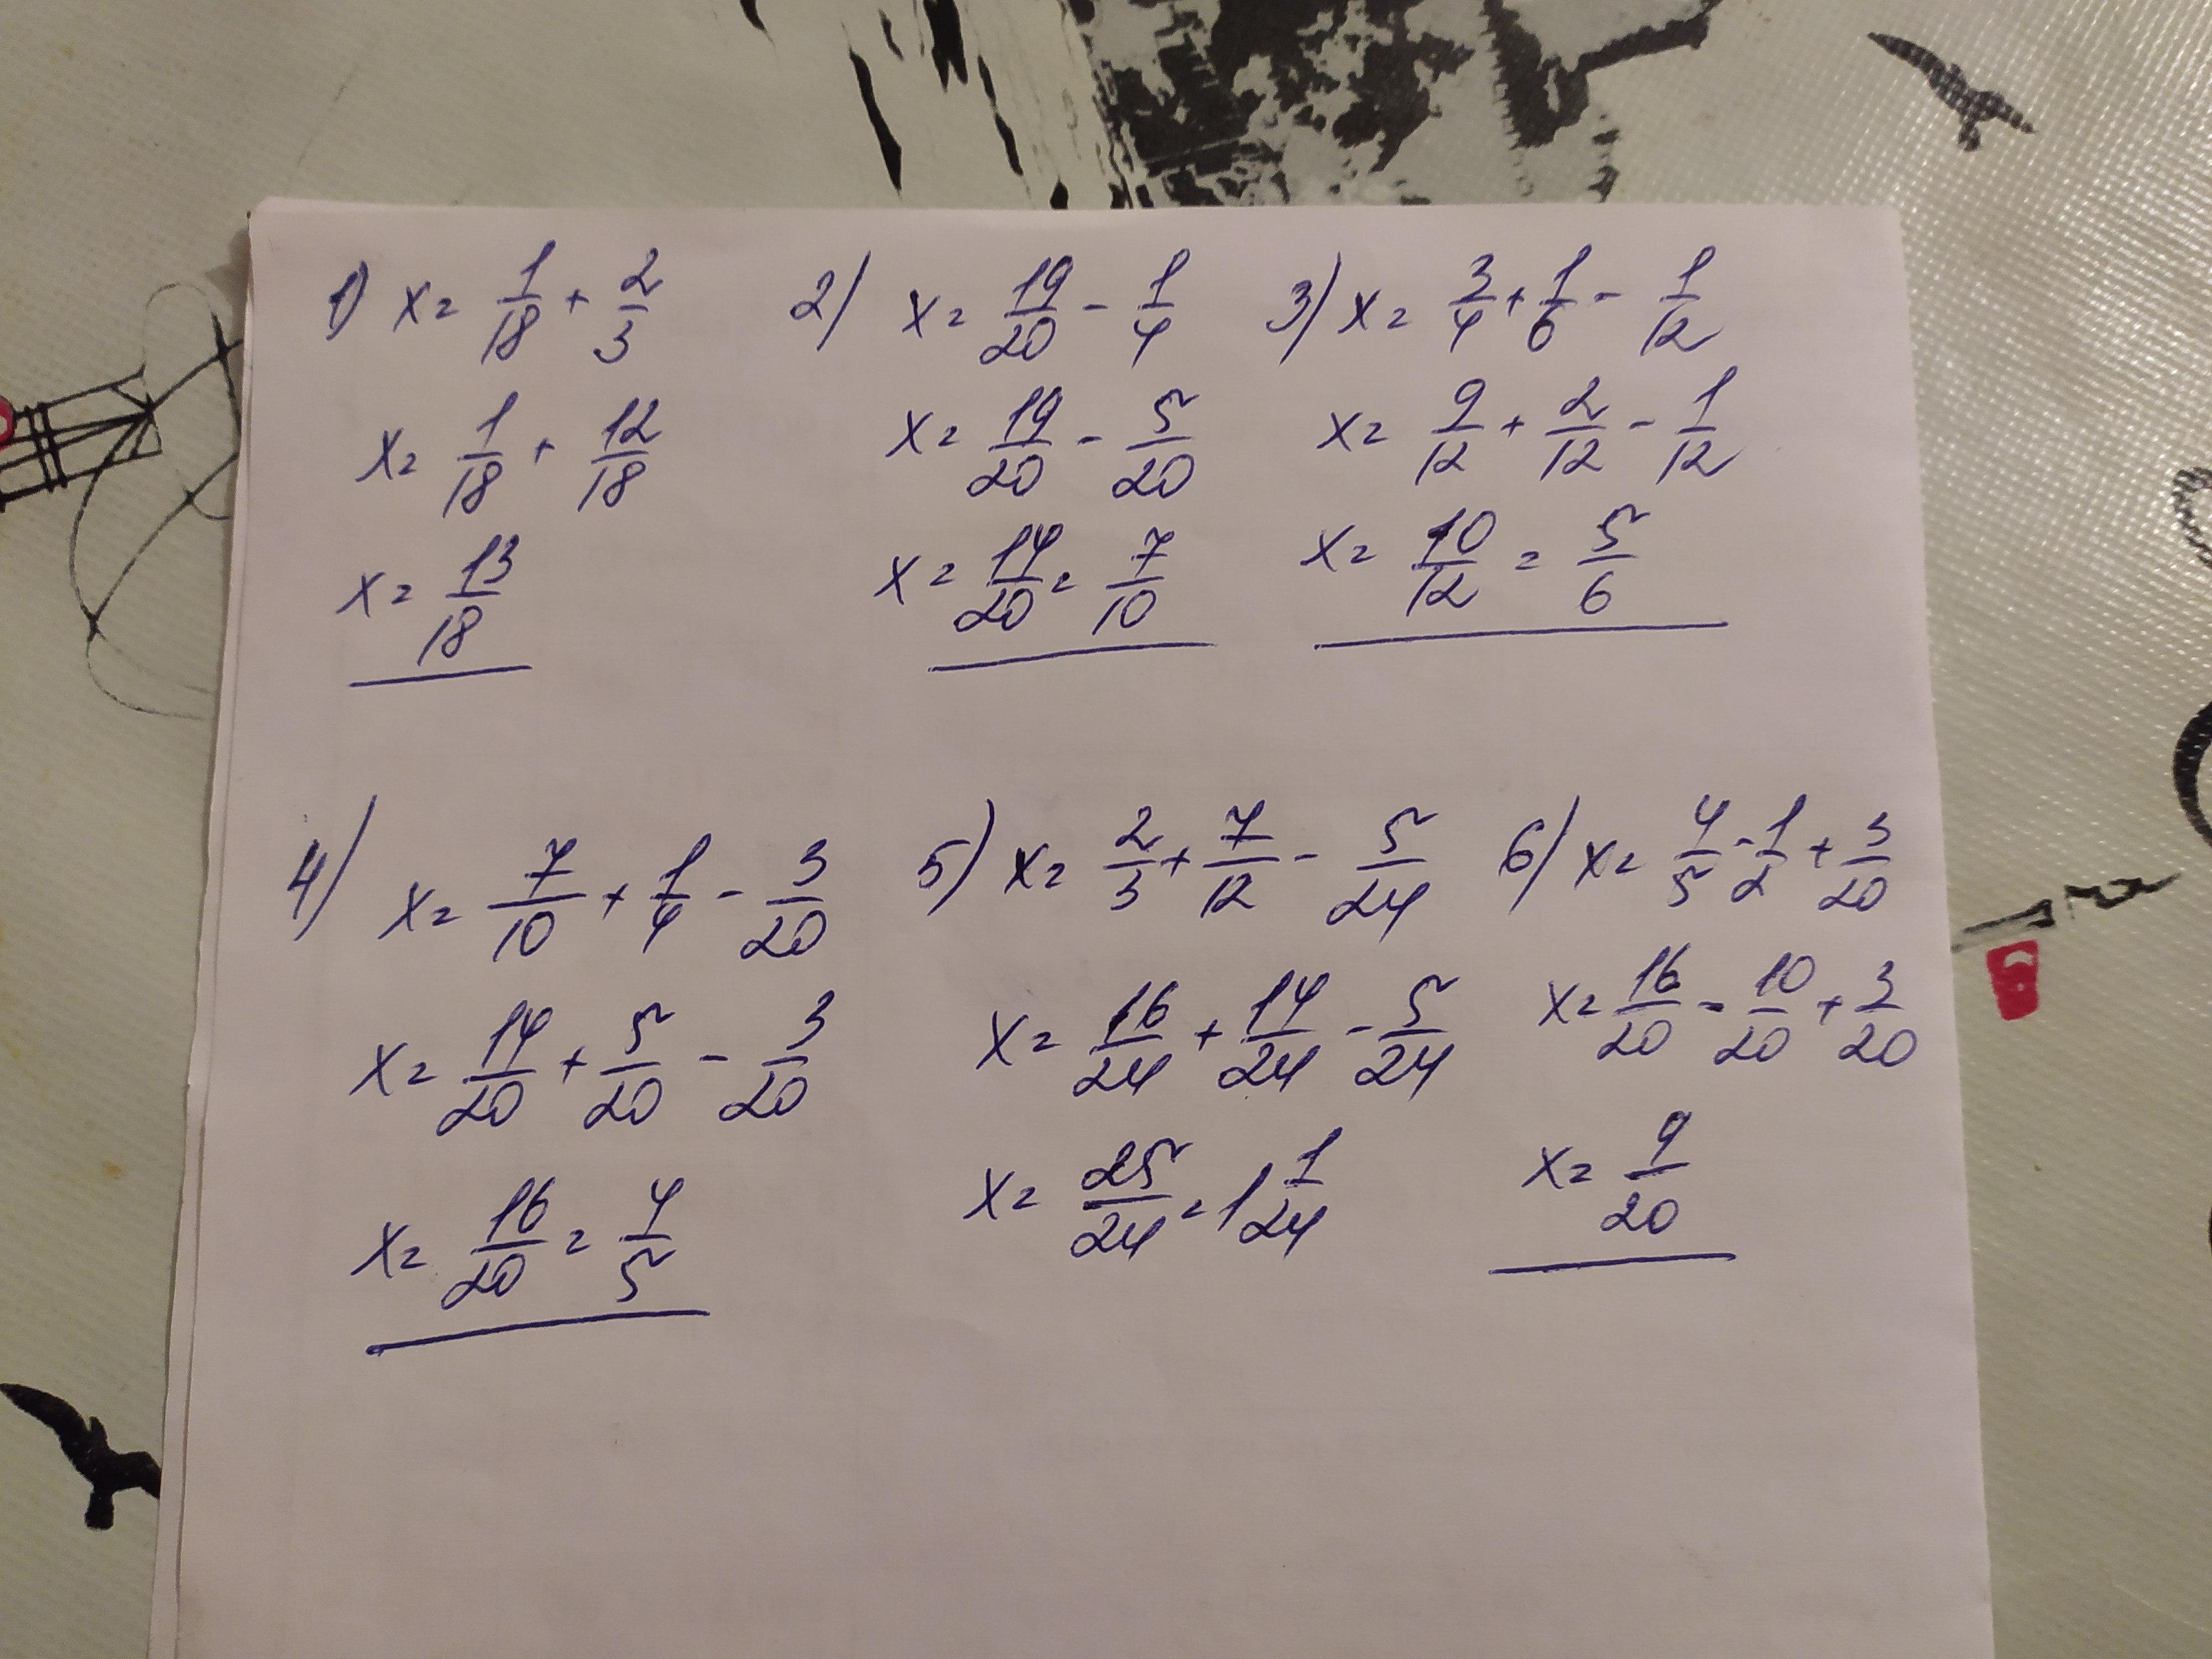 1) x = 1/18 + 2/3
x = 1/18 + 12/18
x = 13/18
2) x = 19/20 - 1/4
x = 19/20 - 5/20
x = 14/20 = 7/10
3) x = 3/4 + 1/6 - 1/12
x = 9/12 + 2/12 - 1/12
x = 10/12 = 5/6
4) x = 7/10 + 1/4 - 3/20
x = 14/20 + 5/20 - 3/20
x = 16/20 = 4/5
5) x = 2/3 + 7/12 - 5/24
x = 16/24 + 14/24 - 5/24
x = 25/24 = 1 1/24
6) x = 4/5 - 1/2 + 3/20
x = 16/20 - 10/20 + 3/20
x = 9/20